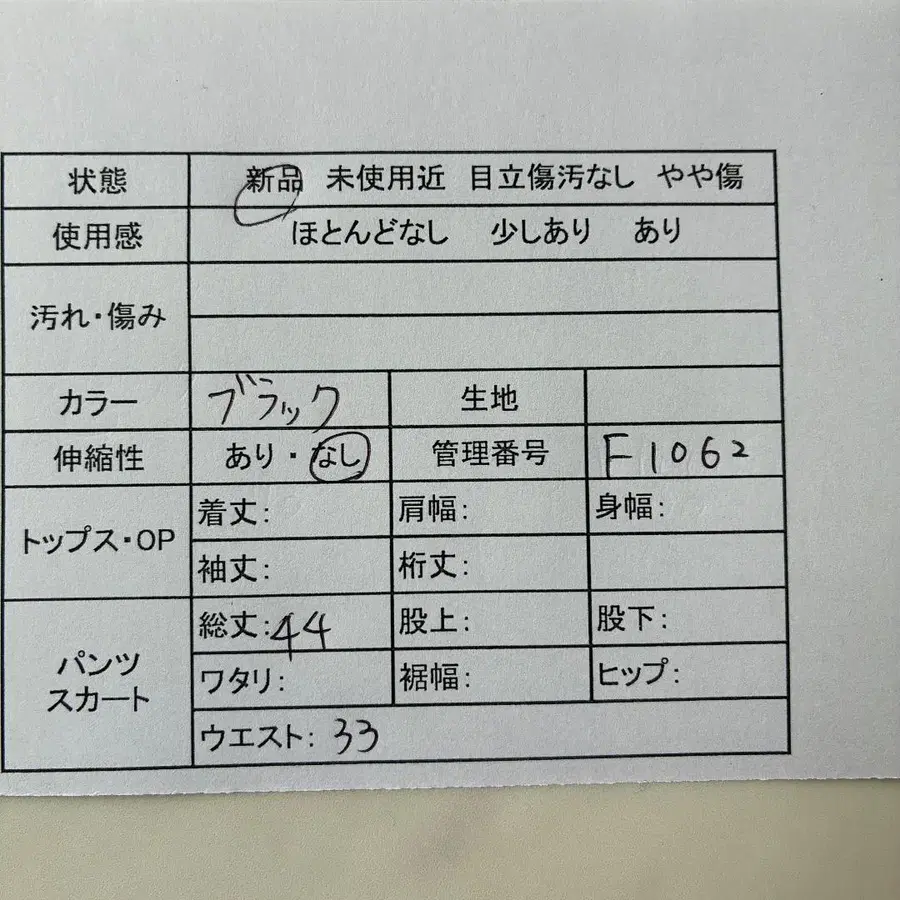 状態 新品 未使用近 目立傷汚なし やや傷
使用感 ほとんどなし 少しあり あり
汚れ・傷み
カラー ブラック 生地
伸縮性 あり・なし 管理番号 F1062
トップス・OP
着丈: 肩幅: 身幅:
袖丈: 裄丈:
パンツ
スカート
総丈:44 股上: 股下:
ワタリ: 裾幅: ヒップ:
ウエスト: 33